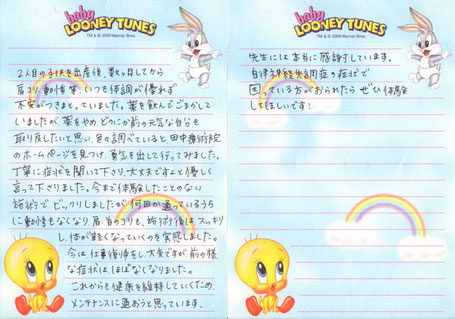 baby
LOONEY TUNES
TM & © 2000 Warner Bros.
2人目の子供を出産後、数ヶ月してから
肩コリ、動悸等、いつも体調が優れず
不安がつきまとっていました。薬を飲んでごまかして
いましたが、薬をやめ、どうにか前の元気な自分を
取り戻したいと思い、色々調べていると、田中療術院
のホームページを見つけ、勇気を出して行ってみました。
丁寧に症状を聞いて下さり、大丈夫ですよと優しく
言って下さりました。今まで体験したことのない
施術で、ビックリしましたが、何回か通っているうち
に動悸もなくなり、肩、首のコリも、施術後はスッキリ
し、体が軽くなっていくのを実感しました。
今は仕事復帰をし、大変ですが前の様
な症状はほぼなくなりました。
これからも健康を維持していくため、
メンテナンスに通おうと思っています。
baby
LOONEY TUNES
TM & © 2000 Warner Bros.
先生には本当に感謝しています。
自律神経失調症の症状で
困っている方がおられたらぜひ体験
してほしいです!